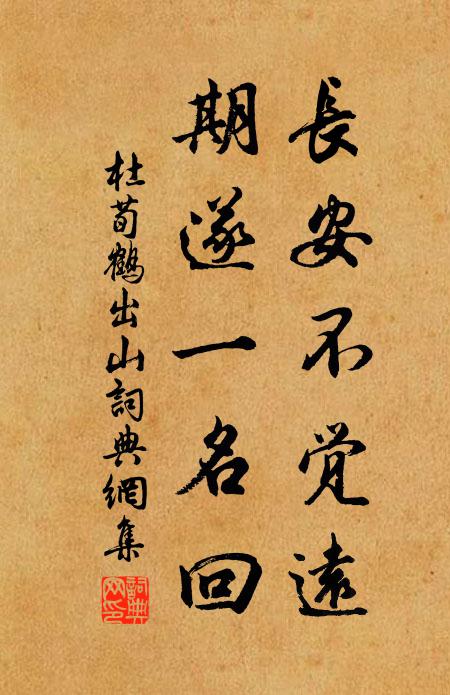 長安不觉遠
期遂一名回
杜荀鶴出山詞典網集
詞典
网印